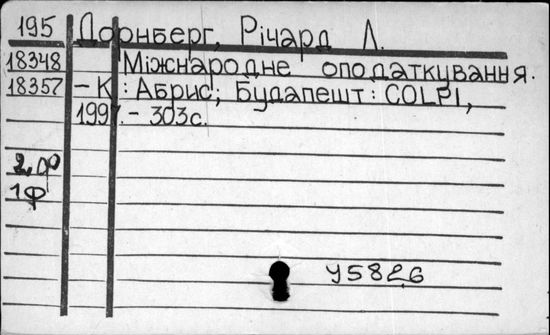 195 Дорнберг, Річард Л.
18348 Міжнародне оподаткування.
18357 – К.: Абрис; Будапешт: COLPI,
1997. – 303 с.
2, ф
1ф
У5826